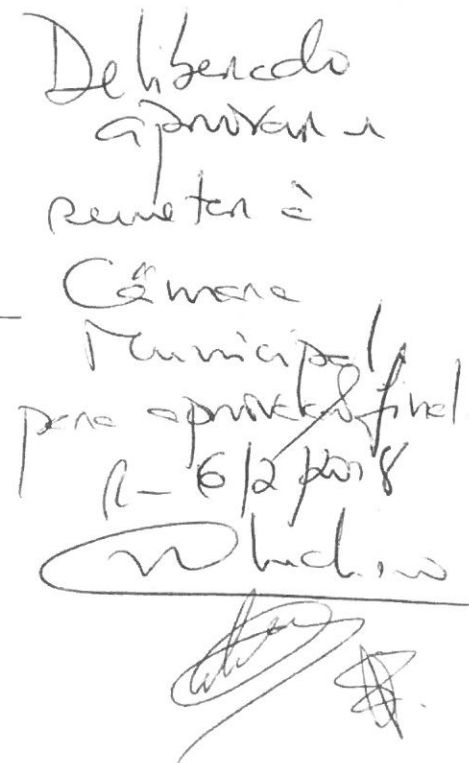 Deliberado
aprovar e
remeter à
Câmara
Municipal,
para aprovação final.
6/2/2018